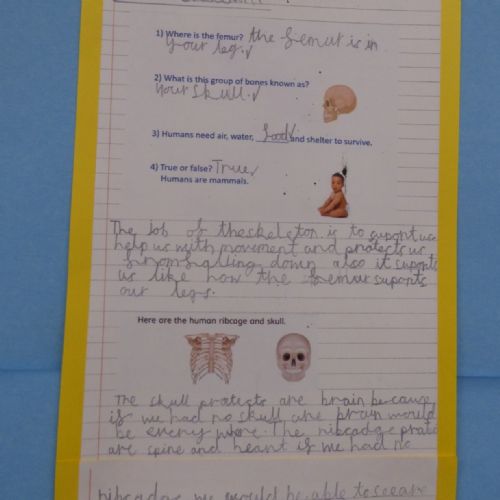 1) Where is the femur? the femur is in
your leg.
2) What is this group of bones known as?
your skull.
3) Humans need air, water, food and shelter to survive.
4) True or false? True
Humans are mammals.
The job of theskeleton is to suport use
help us with movement and protects us
from falling down also it supports
us like how the femur suports
our legs.
Here are the human ribcage and skull.
The skull protects are brain because
if we had no skull are brain would
be every were. The ribcadge
are spine and heart if we had no
ribcadge we would be able to